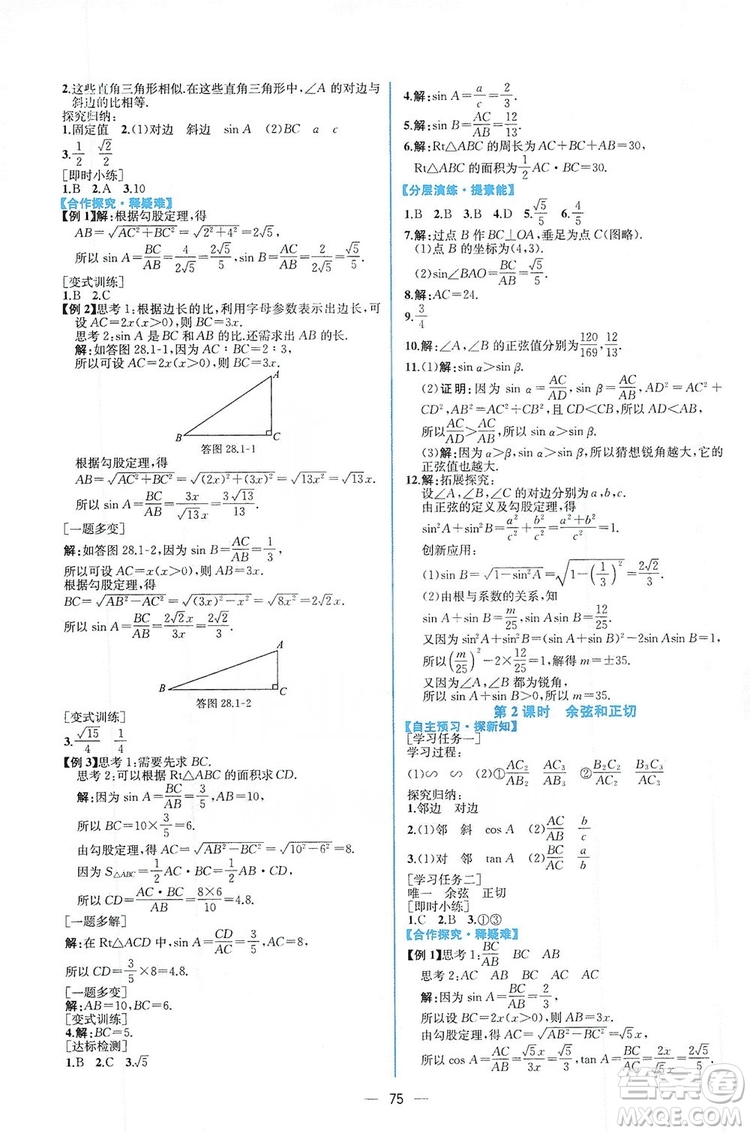 2.这些直角三角形相似.在这些直角三角形中,∠A 的对边与
斜边的比相等.
探究归纳:
1.固定值 2.(1)对边 斜边 sin A (2)BC a c
3.1/2 √2/2
[即时小练]
1.B 2.A 3.10
【合作探究·释疑难】
【例 1】解:根据勾股定理,得
AB=√(AC²+BC²)=√(2²+4²)=2√5,
所以 sin A=BC/AB=4/(2√5)=2√5/5.
[变式训练]
1.B 2.C
【例 2】思考 1:根据边长的比,利用字母参数表示出边长,可
设 AC=2x(x>0),则 BC=3x.
思考 2:sin A 是 BC 和 AB 的比.还需求出 AB 的长.
解:如答图 28.1-1,因为 AC∶BC=2∶3,
所以可设 AC=2x(x>0),则 BC=3x.
A
B C
答图 28.1-1
根据勾股定理,得
AB=√(AC²+BC²)=√((2x)²+(3x)²)=√(13x²)=√13 x,
所以 sin A=BC/AB=3x/(√13 x)=3√13/13.
[一题多变]
解:如答图 28.1-2,因为 sin B=AC/AB=1/3,
所以可设 AC=x(x>0),则 AB=3x.
根据勾股定理,得
BC=√(AB²-AC²)=√((3x)²-x²)=√(8x²)=2√2x,
所以 sin A=BC/AB=2√2x/3x=2√2/3.
A
B C
答图 28.1-2
[变式训练]
3.√15/4 1/4
【例 3】思考 1:需要先求 BC.
思考 2:可以根据 Rt△ABC 的面积求 CD.
解:因为 sin A=BC/AB=3/5,
所以 BC=10×3/5=6.
由勾股定理,得 AC=√(AB²-BC²)=√(10²-6²)=8.
因为 S△ABC=1/2AC·BC=1/2AB·CD,
所以 CD=AC·BC/AB=8×6/10=24/5.
[一题多解]
解:在 Rt△ACD 中,sin A=CD/AC=3/5,AC=8,
所以 CD=3/5×8=24/5.
[一题多变]
解:AB=10,BC=6.
[变式训练]
4.解:BC=5.
[达标检测]
1.B 2.C 3.√5
4.解:sin A=a/c=2/3.
5.解:sin B=AC/AB=12/13.
6.解:Rt△ABC 的周长为 AC+BC+AB=60,
Rt△ABC 的面积为1/2AC·BC=120.
【分层演练·提素能】
1.B 2.B 3.B 4.D 5.√5/5 6.4/5
7.解:过点 B 作 BC⊥OA,垂足为点 C(图略).
(1)点 B 的坐标为(4,3).
(2)sin∠BAO=BC/AB=√5/5.
8.解:AC=24.
9.3/4
10.解:∠A,∠B 的正弦值分别为120/169,12/13.
11.(1)解:sin α>sin β.
(2)证明:因为 sin α=AC/AD,sin β=AC/AB,AD²=AC²+
CD²,AB²=AC²+CB²,且 CD<CB,所以 AD<AB,
所以AC/AD>AC/AB,所以 sin α>sin β.
(3)解:因为 α>β,sin α>sin β,所以猜想锐角越大,它的
正弦值也越大.
12.解:拓展探究:
设∠A,∠B,∠C 的对边分别为 a,b,c,
由正弦的定义及勾股定理,得
sin²A+sin²B=a²/c²+b²/c²=(a²+b²)/c²=1.
创新应用:
(1)sin B=√(1-sin²A)=√(1-(1/3)²)=2√2/3.
(2)由根与系数的关系,知
sin A+sin B=m/25,sin Asin B=12/25.
又因为 sin²A+sin²B=1,
所以(m/25)²-2×12/25=1,解得 m=±35.
又因为∠A,∠B 都为锐角,
所以 m=35.
第 2 课时 余弦和正切
【自主预习·探新知】
[学习任务一]
学习过程:
(1)∽ ∽ (2)①AC₂/AB₂ AC₃/AB₃ ②B₂C₂/AC₂ B₃C₃/AC₃
探究归纳:
1.邻边 对边
2.(1)邻 斜 cos A (2)AC/AB b/c
3.(1)对 邻 tan A (2)BC/AC a/b
[学习任务二]
唯一 余弦 正切
[即时小练]
1.C 2.B 3.①③
【合作探究·释疑难】
【例 1】思考 1:BC/AB
思考 2:AC AB BC AC
解:因为 sin A=BC/AB=2/3,
所以设 BC=2x(x>0),则 AB=3x.
由勾股定理,得 AC=√(AB²-BC²)=√5x,
所以 cos A=AC/AB=√5x/3x=√5/3,tan A=BC/AC=2x/(√5x)=2√5/5.
75
答案圈
MXQE.COM